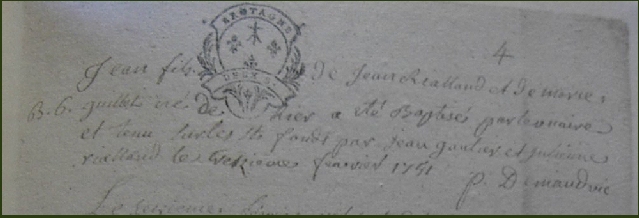 4
BRETAGNE
DEUX S
Jean fils de Jean Rialland et de marie
B. 6. juillet né de hier a été Baptisé par le vicaire
et tenu sur les fonds par Jean gautier et julienne
rialland le treizieme fevrier 1751
p. Demandvie
Le